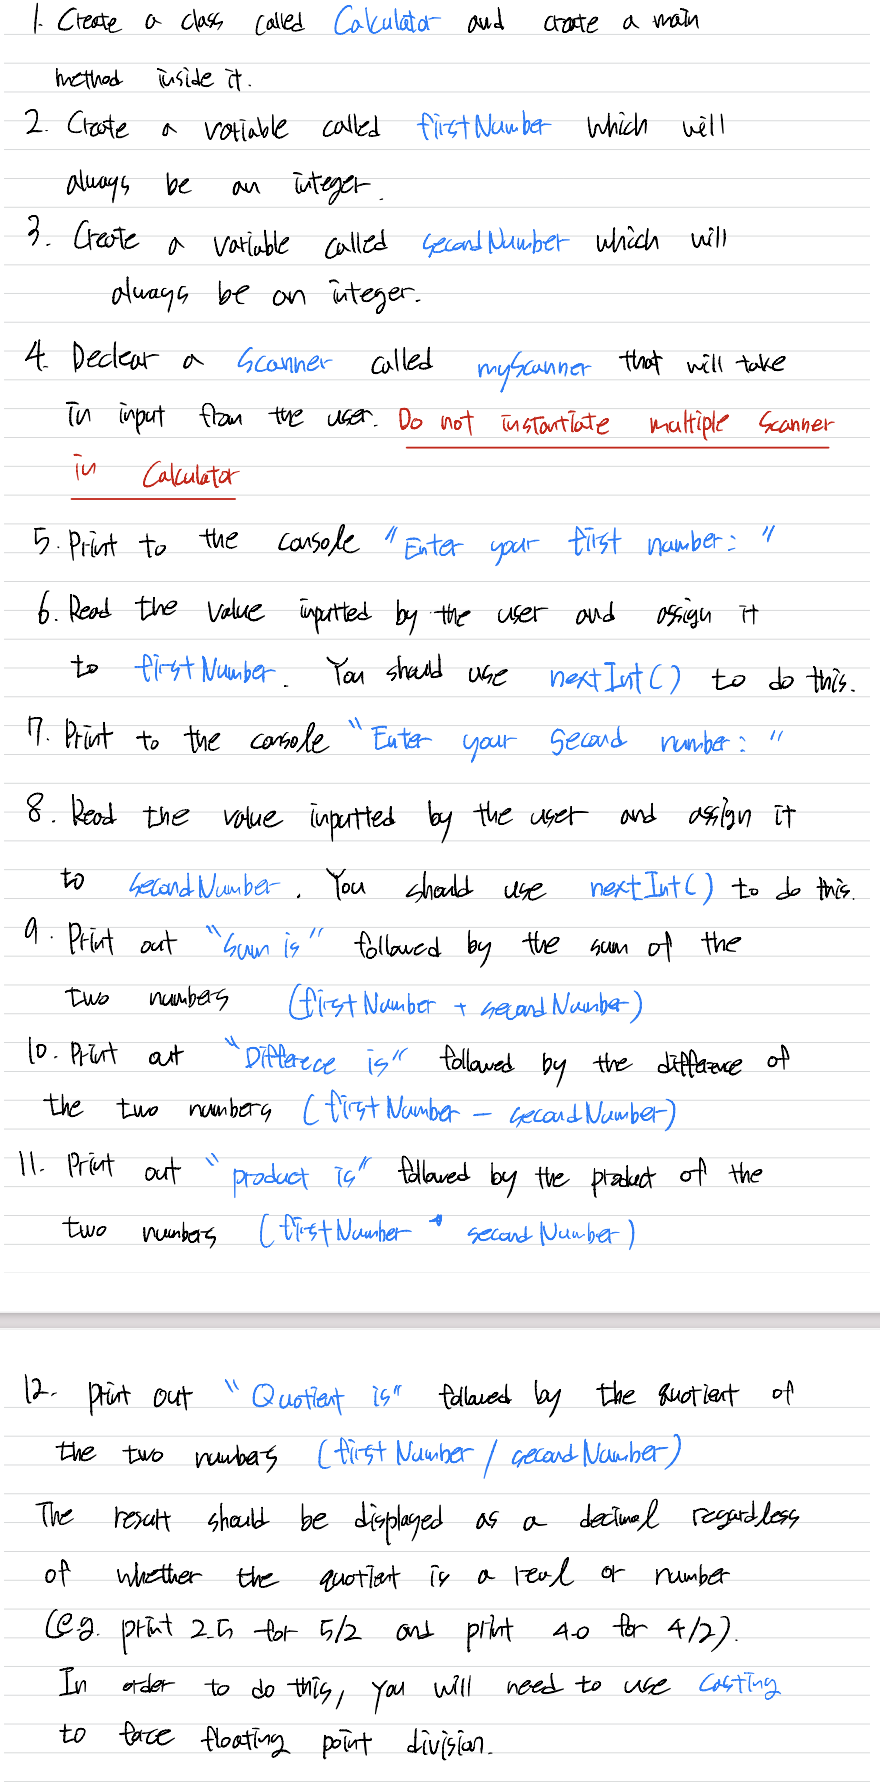 1. Create a class called Calculator and create a main
method inside it.
2. Create a variable called firstNumber which will
always be an integer.
3. Create a variable called secondNumber which will
always be an integer.
4. Declear a Scanner called myScanner that will take
in input from the user. Do not instantiate multiple Scanner
in Calculator
5. Print to the console "Enter your first number: "
6. Read the value inputted by the user and assign it
to firstNumber. You should use nextInt() to do this.
7. Print to the console "Enter your second number: "
8. Read the value inputted by the user and assign it
to secondNumber. You should use nextInt() to do this.
9. Print out "Sum is" followed by the sum of the
two numbers (firstNumber + secondNumber)
10. Print out "Differece is" followed by the difference of
the two numbers (firstNumber - secondNumber)
11. Print out "product is" followed by the product of the
two numbers (firstNumber * secondNumber)
12. print out "Quotient is" followed by the quotient of
the two numbers (firstNumber / secondNumber)
The result should be displayed as a decimal regardless
of whether the quotient is a real or number
(e.g. print 2.5 for 5/2 and print 4.0 for 4/2).
In order to do this, you will need to use casting
to face floating point division.